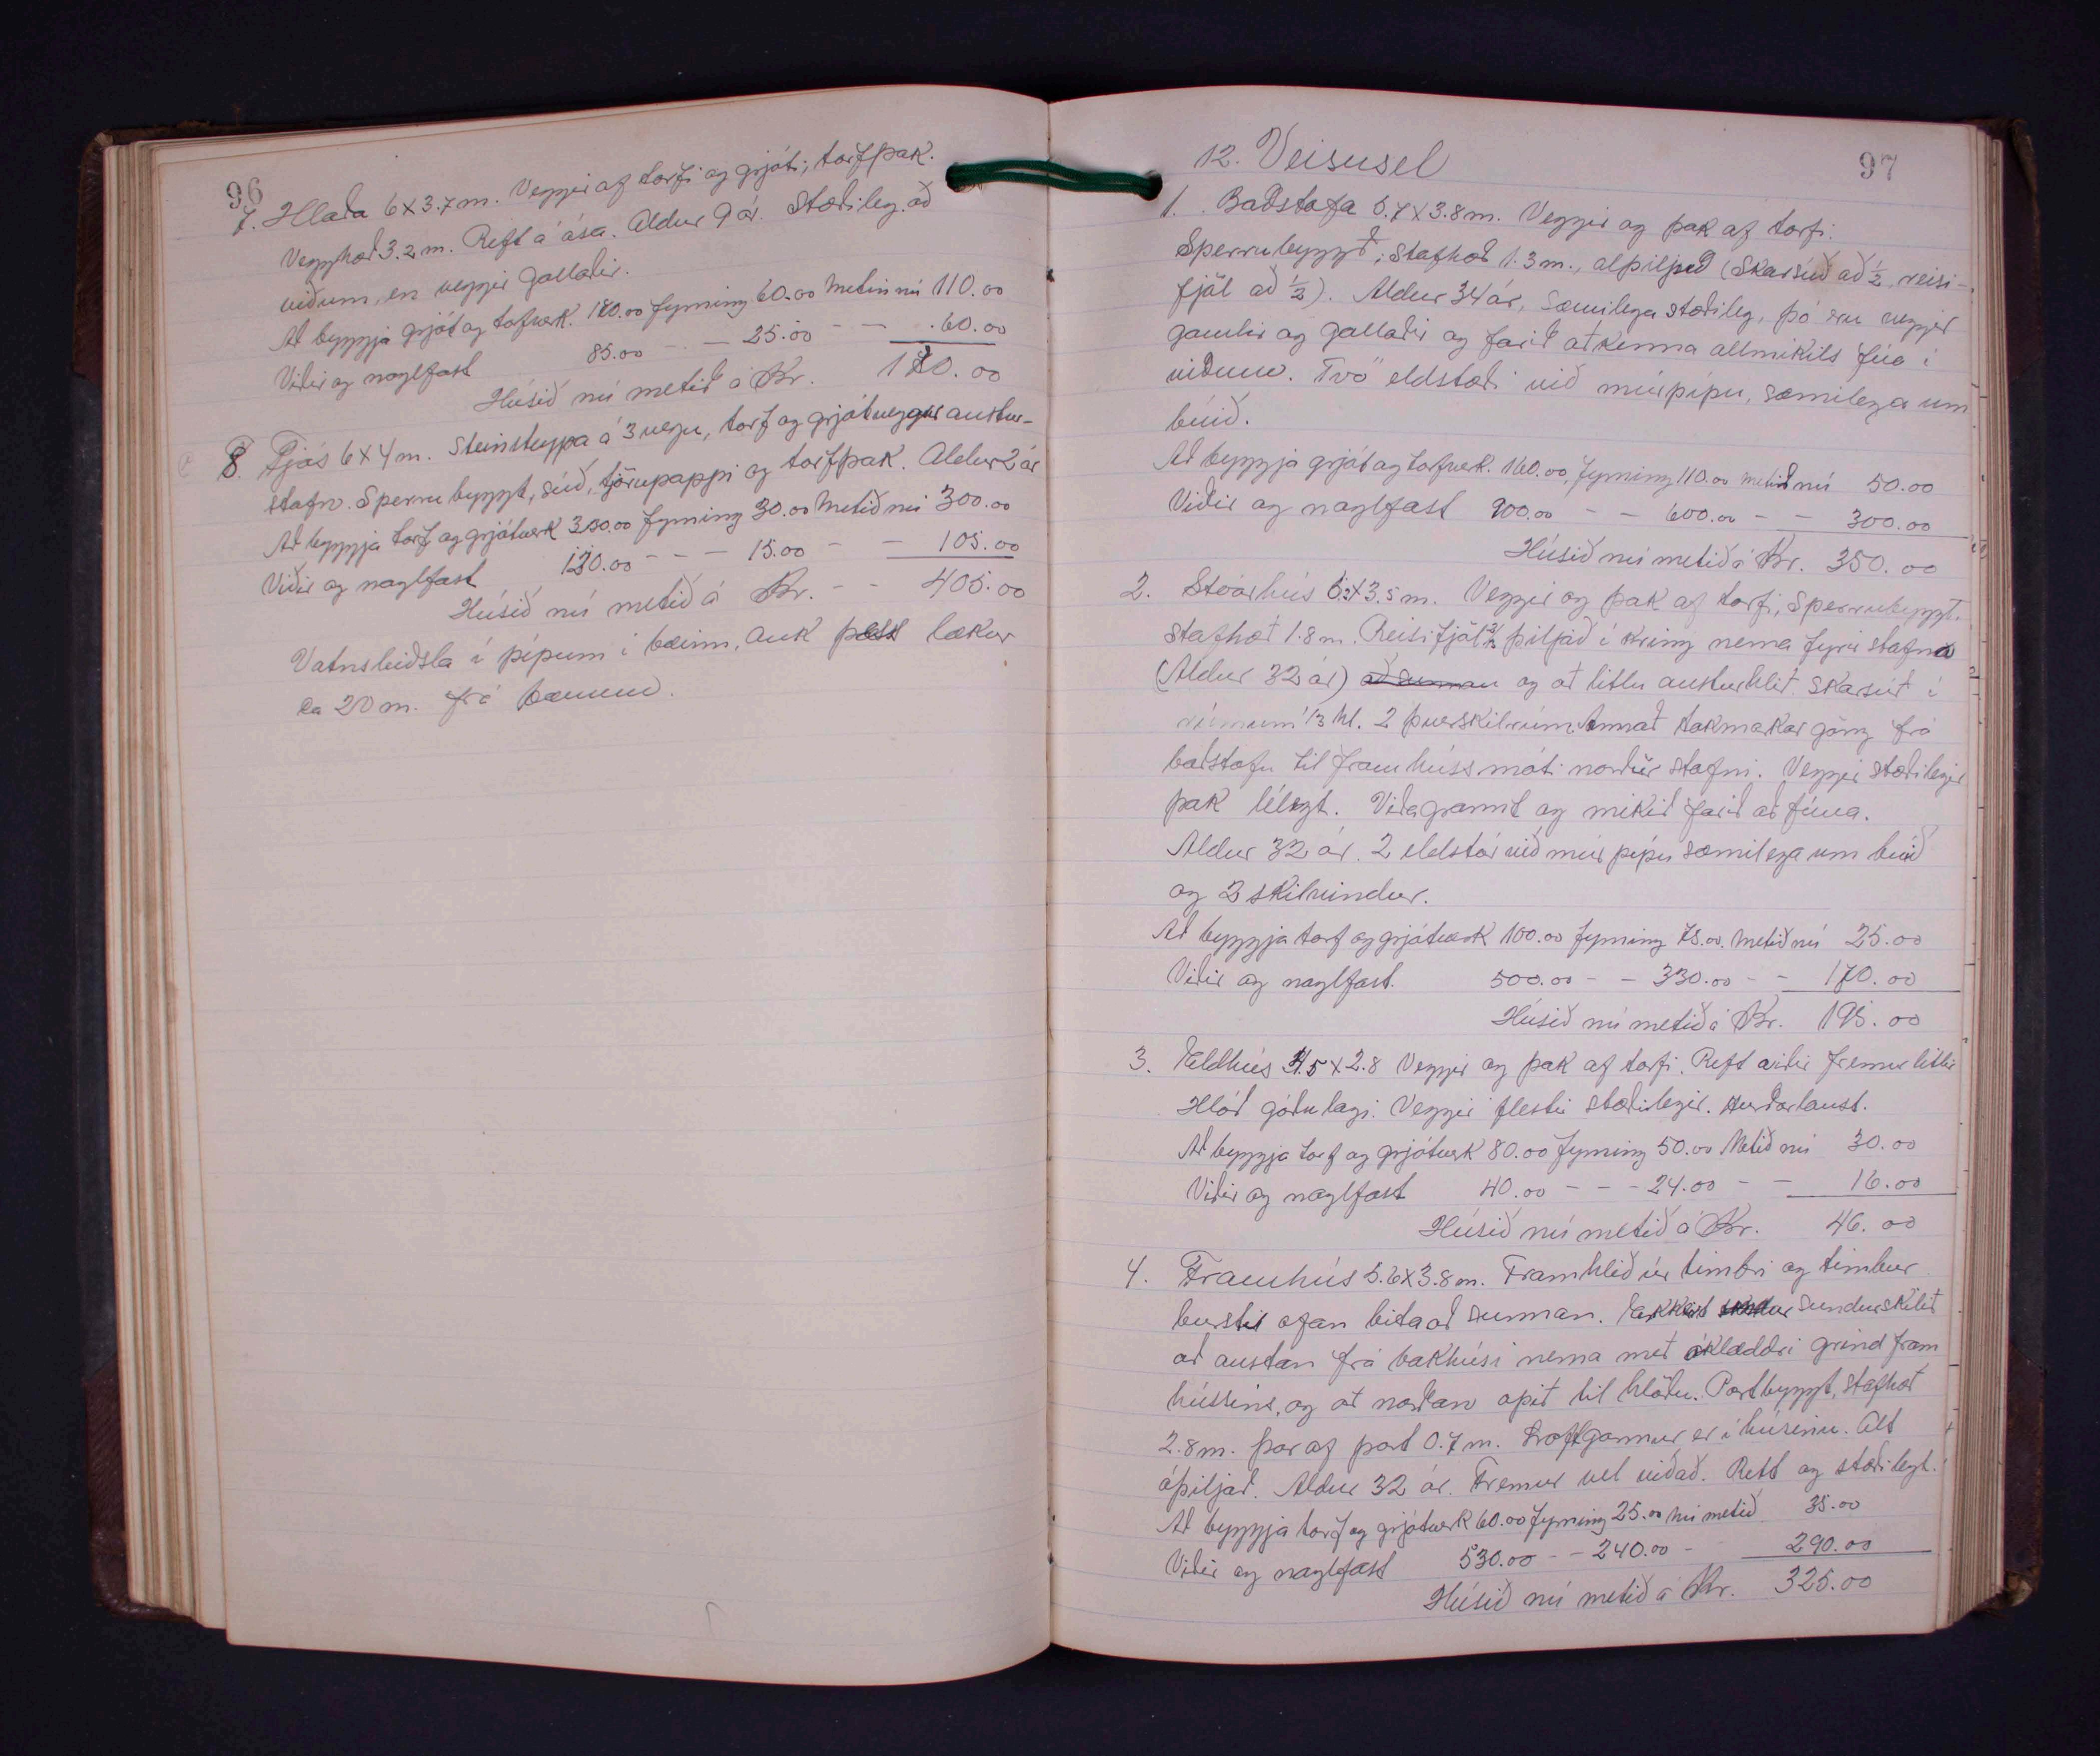 96
7. Hlaða 6x3.7m. Veggir af torfi og grjóti; torfþak.
Vegghæð 3.2m. Reft á ása. Aldur 9 ár. Stæðileg að
viðum, en veggir gallaðir.
At byggja grjót og tofverk. 180.00 fyrning 60.00 Metin nú 110.00
Viðir og naglfast 85.00 - - 25.00 - - 60.00
Húsið nú metið á Kr. 170.00
8. Fjós 6x4m. Steinsteypa á 3 vegu, torf og grjótveggur austur-
stafn. Sperrubyggt, súð, tjörupappi og torfþak. Aldur 2 ár
At byggja torf og grjótverk 330.00 fyrning 30.00 Metið nú 300.00
Viðir og naglfast 120.00 - - - 15.00 - - 105.00
Húsið nú metið á Kr. - - 405.00
Vatnsleiðsla í pípum í bæinn, auk þess lækur
ca 20 m. frá bænum.
97
12. Veisusel
1. Baðstofa 5.7x3.8m. Veggir og þak af torfi.
Sperrubyggð; Stafhæð 1.3m., alþiljuð (Skarsúð að ½ reisi-
fjöl að ½). Aldur 34 ár, sæmilega stæðileg, þó eru veggir
gamlir og gallaðir og farið at kenna allmikils fúa í
viðum. Tvö eldstæði við múrpípu, sæmilega um
búið.
At byggja grjót og torfverk. 160.00, fyrning 110.00 metið nú 50.00
Viðir og naglfast 900.00 - - 600.00 - - 300.00
Húsið nú metið á Kr. 350.00
2. Stóarhús 6.2x3.5m. Veggir og þak af torfi, Sperrubyggt.
Stafhæt 1.8m. Reisifjöl ⅔ þiljað í kring nema fyrir stafna
(Aldur 32 ár) að sunnan og at litlu austurhlið. Skarsút í
rúmum ⅓ hl. 2 þverskilrúm. Annað takmarkar göng frá
baðstofu til framhúss móti norður stafni. Veggir stæðilegir
þak lélegt. Viðagrannt og mikið farið að fúna.
Aldur 32 ár. 2 eldstór við múrpípu sæmilega um búið
og 2 skilvindur.
At byggja torf og grjótverk 100.00 fyrning 75.00. Metið nú 25.00
Viðir og naglfast. 500.00 - - 330.00 - - 170.00
Húsið nú metið á Kr. 195.00
3. Eldhús 4.5x2.8 Veggir og þak af torfi. Reft viðir fremur litlir
Hlóð góðu lagi. Veggir flestir stæðilegir. Hurðarlaust.
At byggja torf og grjótverk 80.00 fyrning 50.00 Metið nú 30.00
Viðir og naglfast 40.00 - - - 24.00 - - 16.00
Húsið nú metið á Kr. 46.00
4. Framhús 5.6x3.8m. Framhlið úr timbri og timbur
burstir ofan bita að sunnan. Ekkert sundurskilit
at austan frá bakhúsi nema með óklæddri grind fram
hússins, og at norðan opið til hlöðu. Portbyggt, stafhæð
2.8m. þar af port 0.7m. Loftgarmur er í húsinu. Alt
óþiljað. Aldur 32 ár. Fremur vel viðað. Rétt og stæðilegt.
At byggja torf og grjótverk 60.00 fyrning 25.00 nú metið 35.00
Viðir og naglfast 530.00 - - 240.00 - 290.00
Húsið nú metið á Kr. 325.00